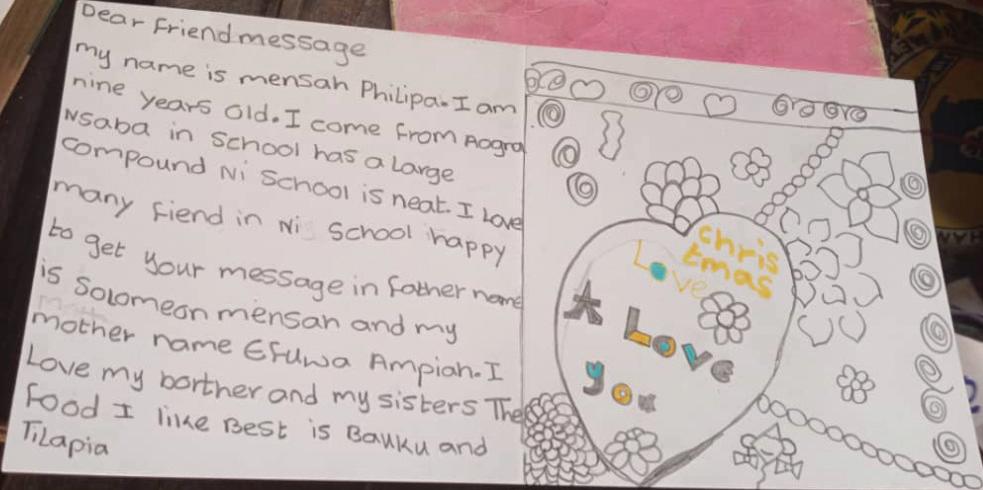 Dear Friend message
my name is mensah Philipa. I am
nine years old. I come from Aogra
Nsaba in School has a Large
compound Ni School is neat. I Love
many fiend in Ni School happy
to get your message in father name
is Solomeon mensah and my
mother name Efuwa Ampiah. I
Love my borther and my sisters The
food I like Best is Bauku and
Tilapia
chris
tmas
Love
A Love
you